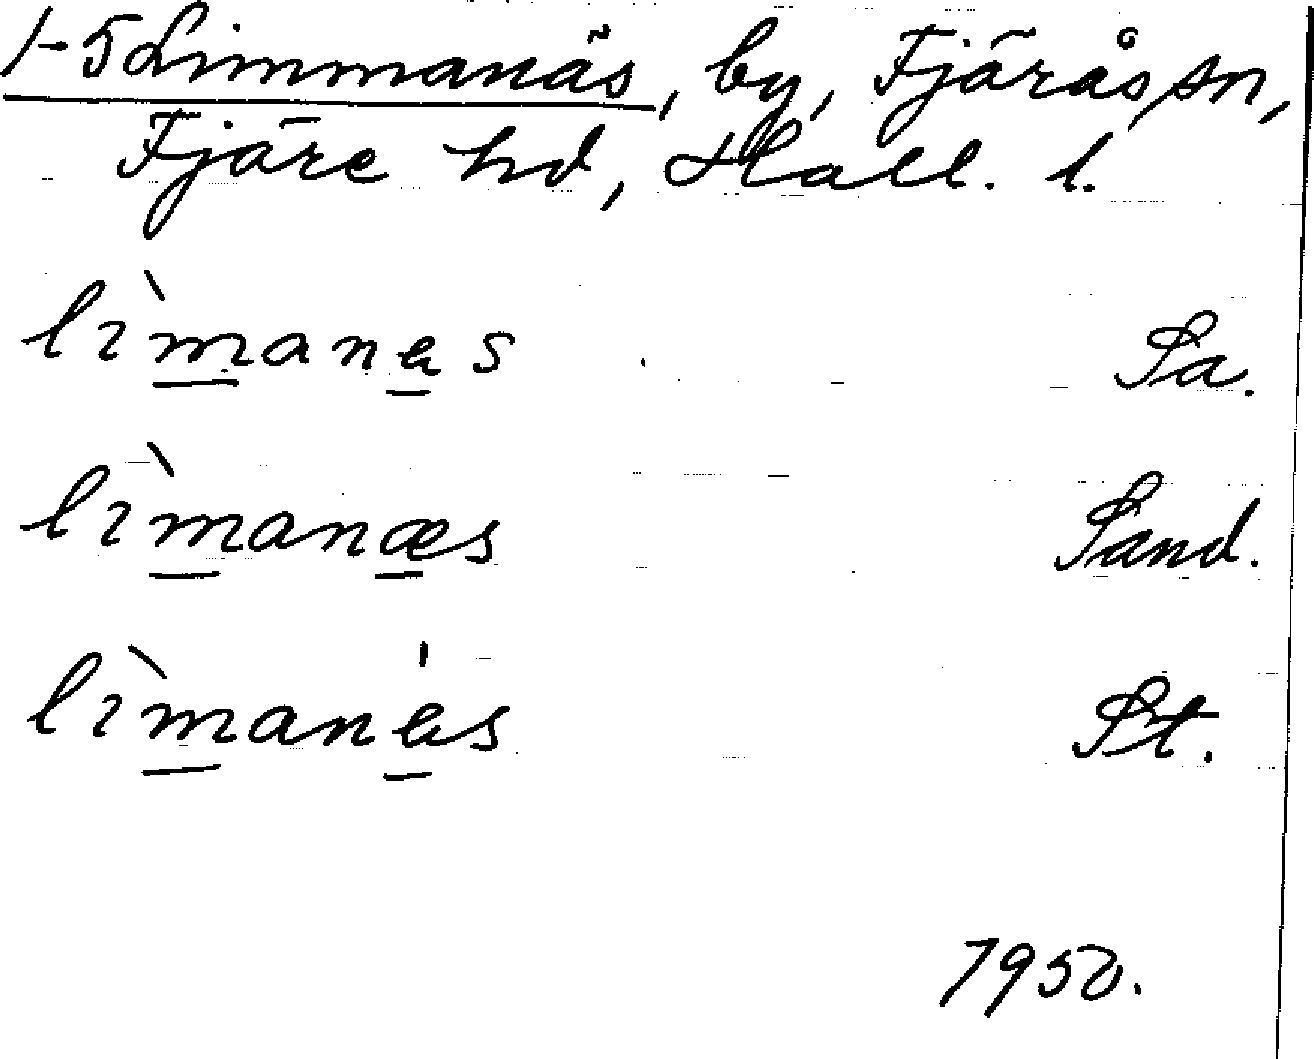 1-5 Limmanäs, by, Fjärås sn,
Fjäre hd, Hall. l.
lìmanes Sa.
lìmanæs Sand.
lìmanés St.
1950.